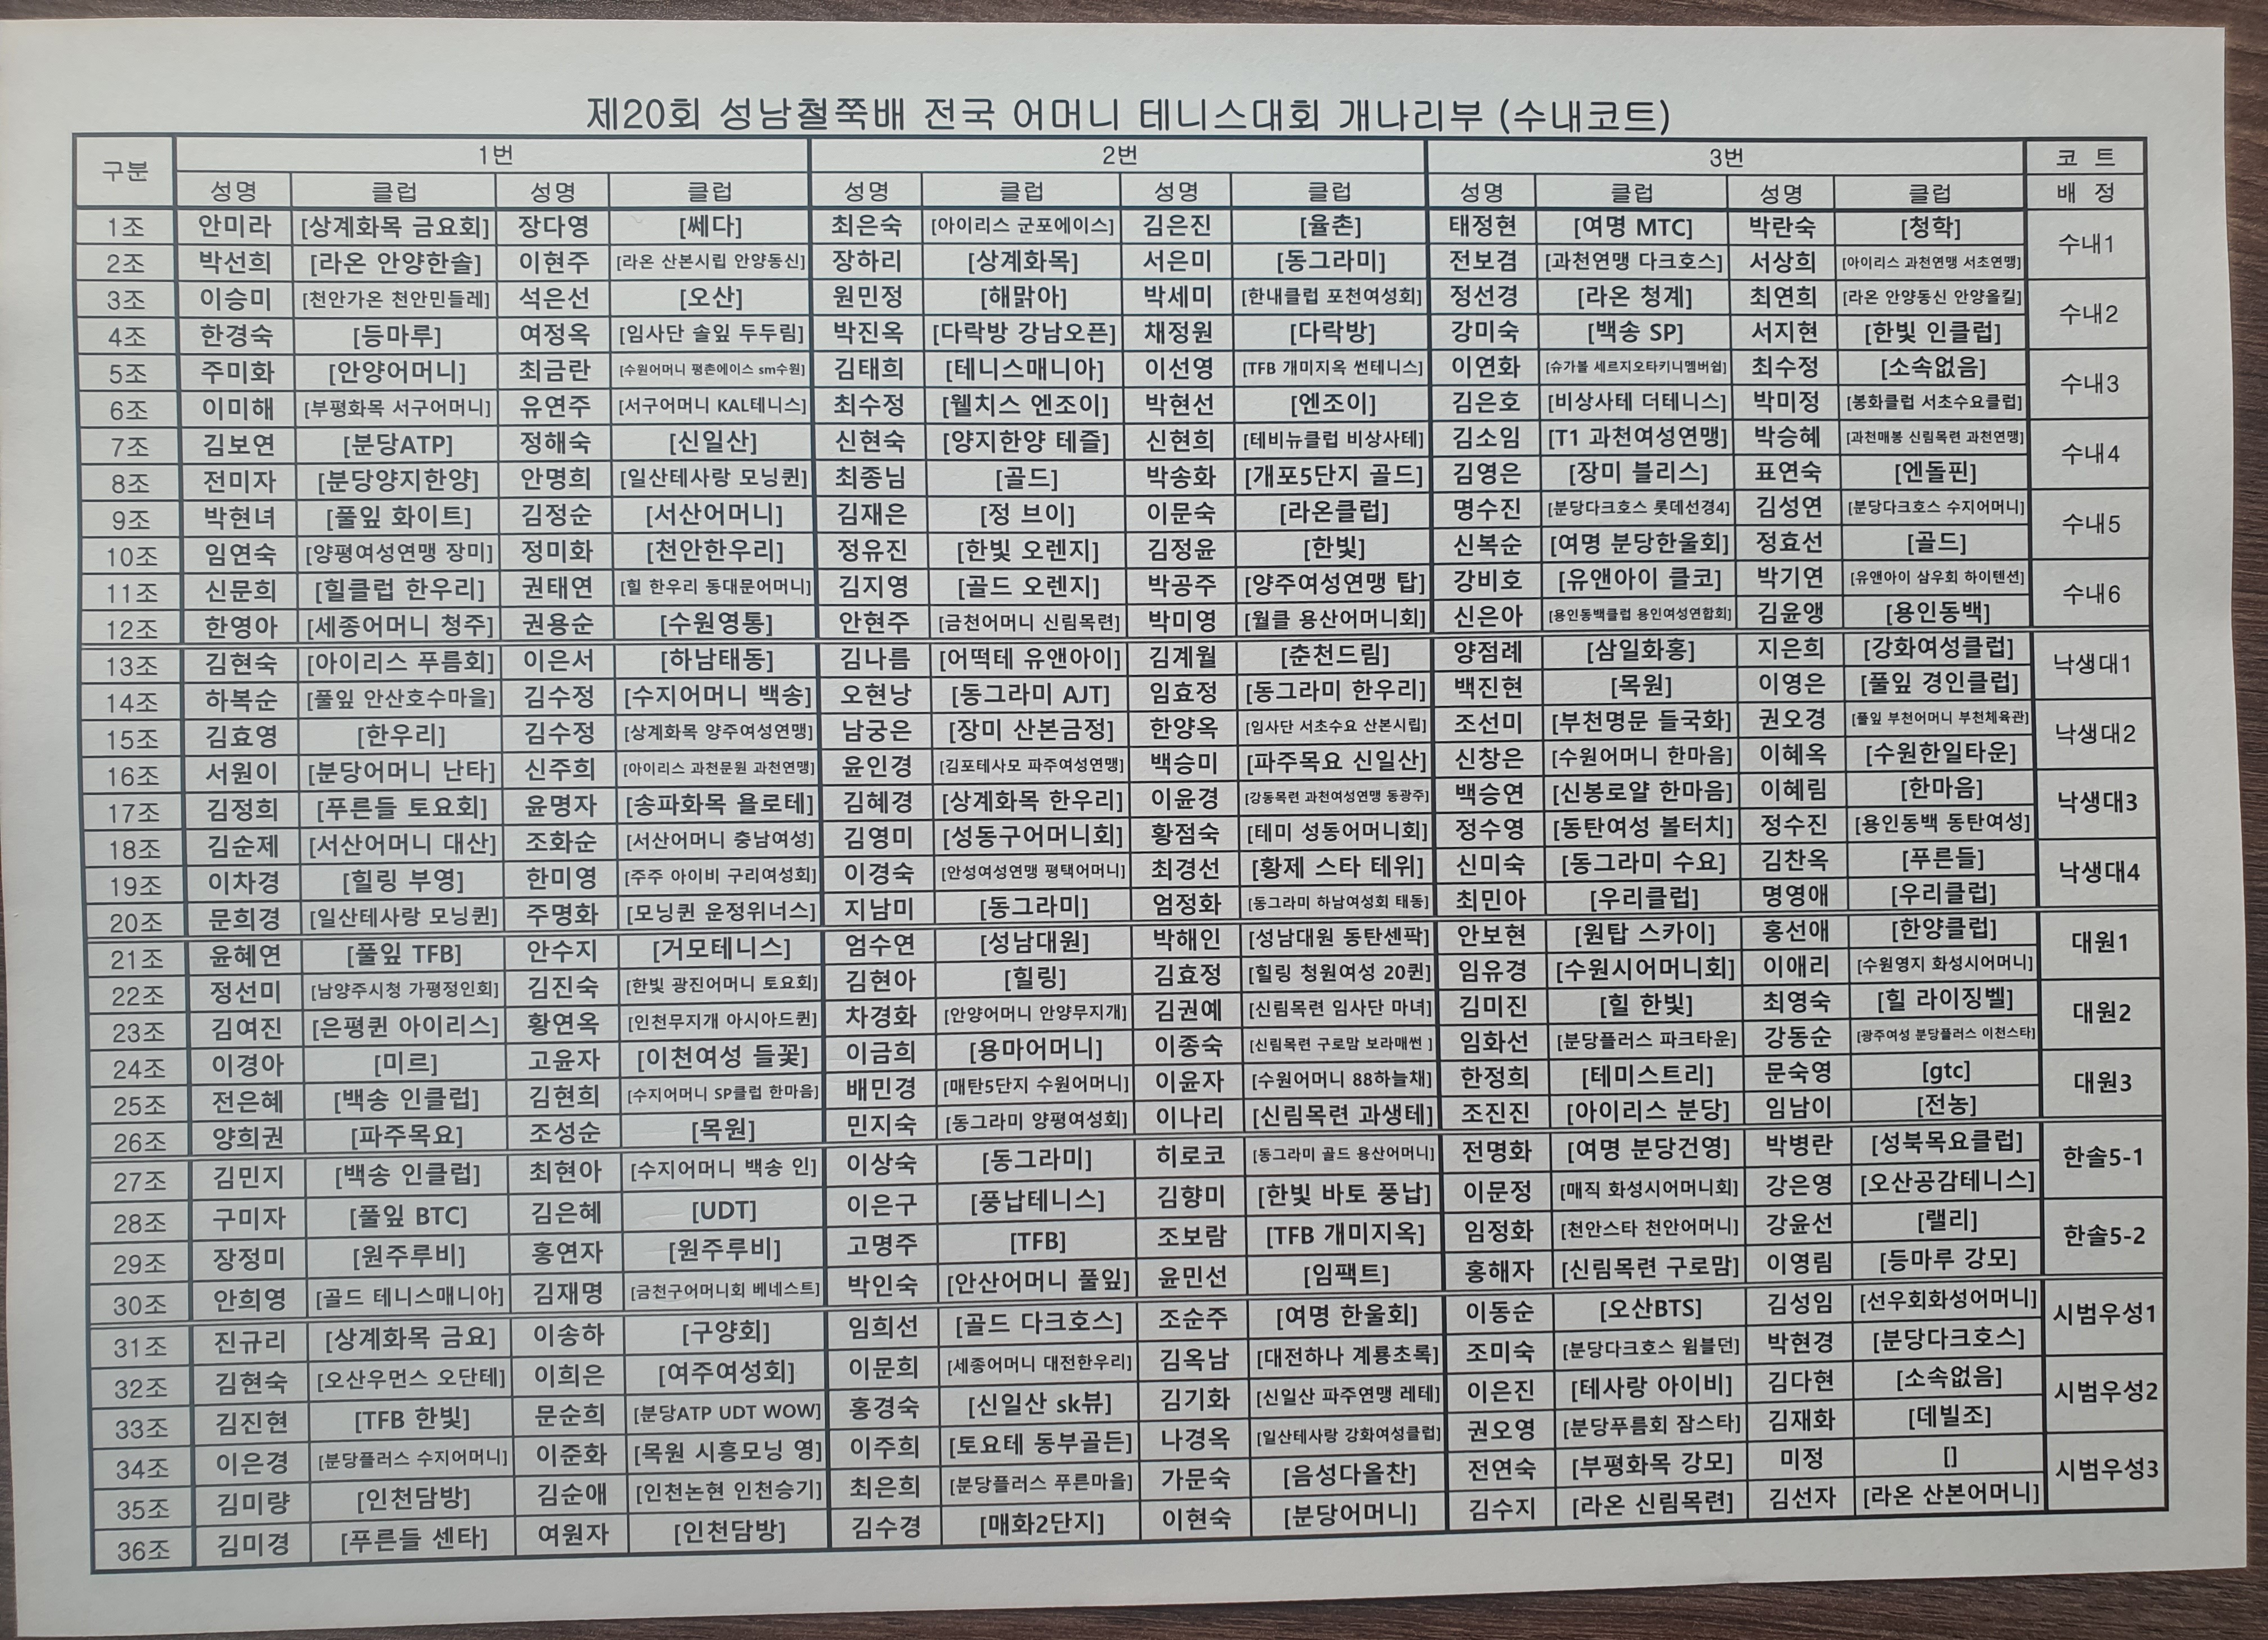 제20회 성남철쭉배 전국 어머니 테니스대회 개나리부 (수내코트)
구분 1번 2번 3번 코 트
성명 클럽 성명 클럽 성명 클럽 성명 클럽 성명 클럽 성명 클럽 배 정
1조 안미라 [상계화목 금요회] 장다영 [쎄다] 최은숙 [아이리스 군포에이스] 김은진 [율촌] 태정현 [여명 MTC] 박란숙 [청학] 수내1
2조 박선희 [라온 안양한솔] 이현주 [라온 산본시립 안양동신] 장하리 [상계화목] 서은미 [동그라미] 전보겸 [과천연맹 다크호스] 서상희 [아이리스 과천연맹 서초연맹]
3조 이승미 [천안가온 천안민들레] 석은선 [오산] 원민정 [해맑아] 박세미 [한내클럽 포천여성회] 정선경 [라온 청계] 최연희 [라온 안양동신 안양올킬] 수내2
4조 한경숙 [등마루] 여정옥 [임사단 솔잎 두두림] 박진옥 [다락방 강남오픈] 채정원 [다락방] 강미숙 [백송 SP] 서지현 [한빛 인클럽]
5조 주미화 [안양어머니] 최금란 [수원어머니 평촌에이스 sm수원] 김태희 [테니스매니아] 이선영 [TFB 개미지옥 썬테니스] 이연화 [슈가볼 세르지오타키니멤버쉽] 최수정 [소속없음] 수내3
6조 이미해 [부평화목 서구어머니] 유연주 [서구어머니 KAL테니스] 최수정 [웰치스 엔조이] 박현선 [엔조이] 김은호 [비상사테 더테니스] 박미정 [봉화클럽 서초수요클럽]
7조 김보연 [분당ATP] 정해숙 [신일산] 신현숙 [양지한양 테즐] 신현희 [테비뉴클럽 비상사테] 김소임 [T1 과천여성연맹] 박승혜 [과천매봉 신림목련 과천연맹] 수내4
8조 전미자 [분당양지한양] 안명희 [일산테사랑 모닝퀸] 최종님 [골드] 박송화 [개포5단지 골드] 김영은 [장미 블리스] 표연숙 [엔돌핀]
9조 박현녀 [풀잎 화이트] 김정순 [서산어머니] 김재은 [정 브이] 이문숙 [라온클럽] 명수진 [분당다크호스 롯데선경4] 김성연 [분당다크호스 수지어머니] 수내5
10조 임연숙 [양평여성연맹 장미] 정미화 [천안한우리] 정유진 [한빛 오렌지] 김정윤 [한빛] 신복순 [여명 분당한울회] 정효선 [골드]
11조 신문희 [힐클럽 한우리] 권태연 [힐 한우리 동대문어머니] 김지영 [골드 오렌지] 박공주 [양주여성연맹 탑] 강비호 [유앤아이 클코] 박기연 [유앤아이 삼우회 하이텐션] 수내6
12조 한영아 [세종어머니 청주] 권용순 [수원영통] 안현주 [금천어머니 신림목련] 박미영 [월클 용산어머니회] 신은아 [용인동백클럽 용인여성연합회] 김윤앵 [용인동백]
13조 김현숙 [아이리스 푸름회] 이은서 [하남태동] 김나름 [어떡테 유앤아이] 김계월 [춘천드림] 양점례 [삼일화홍] 지은희 [강화여성클럽] 낙생대1
14조 하복순 [풀잎 안산호수마을] 김수정 [수지어머니 백송] 오현낭 [동그라미 AJT] 임효정 [동그라미 한우리] 백진현 [목원] 이영은 [풀잎 경인클럽]
15조 김효영 [한우리] 김수정 [상계화목 양주여성연맹] 남궁은 [장미 산본금정] 한양옥 [임사단 서초수요 산본시립] 조선미 [부천명문 들국화] 권오경 [풀잎 부천어머니 부천체육관] 낙생대2
16조 서원이 [분당어머니 난타] 신주희 [아이리스 과천문원 과천연맹] 윤인경 [김포테사모 파주여성연맹] 백승미 [파주목요 신일산] 신창은 [수원어머니 한마음] 이혜옥 [수원한일타운]
17조 김정희 [푸른들 토요회] 윤명자 [송파화목 욜로테] 김혜경 [상계화목 한우리] 이윤경 [강동목련 과천여성연맹 동광주] 백승연 [신봉로얄 한마음] 이혜림 [한마음] 낙생대3
18조 김순제 [서산어머니 대산] 조화순 [서산어머니 충남여성] 김영미 [성동구어머니회] 황점숙 [테미 성동어머니회] 정수영 [동탄여성 볼터치] 정수진 [용인동백 동탄여성]
19조 이차경 [힐링 부영] 한미영 [주주 아이비 구리여성회] 이경숙 [안성여성연맹 평택어머니] 최경선 [황제 스타 테위] 신미숙 [동그라미 수요] 김찬옥 [푸른들] 낙생대4
20조 문희경 [일산테사랑 모닝퀸] 주명화 [모닝퀸 운정위너스] 지남미 [동그라미] 엄정화 [동그라미 하남여성회 태동] 최민아 [우리클럽] 명영애 [우리클럽]
21조 윤혜연 [풀잎 TFB] 안수지 [거모테니스] 엄수연 [성남대원] 박해인 [성남대원 동탄센팍] 안보현 [원탑 스카이] 홍선애 [한양클럽] 대원1
22조 정선미 [남양주시청 가평정인회] 김진숙 [한빛 광진어머니 토요회] 김현아 [힐링] 김효정 [힐링 청원여성 20퀸] 임유경 [수원시어머니회] 이애리 [수원영지 화성시어머니]
23조 김여진 [은평퀸 아이리스] 황연옥 [인천무지개 아시아드퀸] 차경화 [안양어머니 안양무지개] 김권예 [신림목련 임사단 마녀] 김미진 [힐 한빛] 최영숙 [힐 라이징벨] 대원2
24조 이경아 [미르] 고윤자 [이천여성 들꽃] 이금희 [용마어머니] 이종숙 [신림목련 구로맘 보라매썬 ] 임화선 [분당플러스 파크타운] 강동순 [광주여성 분당플러스 이천스타]
25조 전은혜 [백송 인클럽] 김현희 [수지어머니 SP클럽 한마음] 배민경 [매탄5단지 수원어머니] 이윤자 [수원어머니 88하늘채] 한정희 [테미스트리] 문숙영 [gtc] 대원3
26조 양희권 [파주목요] 조성순 [목원] 민지숙 [동그라미 양평여성회] 이나리 [신림목련 과생테] 조진진 [아이리스 분당] 임남이 [전농]
27조 김민지 [백송 인클럽] 최현아 [수지어머니 백송 인] 이상숙 [동그라미] 히로코 [동그라미 골드 용산어머니] 전명화 [여명 분당건영] 박병란 [성북목요클럽] 한솔5-1
28조 구미자 [풀잎 BTC] 김은혜 [UDT] 이은구 [풍납테니스] 김향미 [한빛 바토 풍납] 이문정 [매직 화성시어머니회] 강은영 [오산공감테니스]
29조 장정미 [원주루비] 홍연자 [원주루비] 고명주 [TFB] 조보람 [TFB 개미지옥] 임정화 [천안스타 천안어머니] 강윤선 [랠리] 한솔5-2
30조 안희영 [골드 테니스매니아] 김재명 [금천구어머니회 베네스트] 박인숙 [안산어머니 풀잎] 윤민선 [임팩트] 홍해자 [신림목련 구로맘] 이영림 [등마루 강모]
31조 진규리 [상계화목 금요] 이송하 [구양회] 임희선 [골드 다크호스] 조순주 [여명 한울회] 이동순 [오산BTS] 김성임 [선우회화성어머니] 시범우성1
32조 김현숙 [오산우먼스 오단테] 이희은 [여주여성회] 이문희 [세종어머니 대전한우리] 김옥남 [대전하나 계룡초록] 조미숙 [분당다크호스 윔블던] 박현경 [분당다크호스]
33조 김진현 [TFB 한빛] 문순희 [분당ATP UDT WOW] 홍경숙 [신일산 sk뷰] 김기화 [신일산 파주연맹 레테] 이은진 [테사랑 아이비] 김다현 [소속없음] 시범우성2
34조 이은경 [분당플러스 수지어머니] 이준화 [목원 시흥모닝 영] 이주희 [토요테 동부골든] 나경옥 [일산테사랑 강화여성클럽] 권오영 [분당푸름회 잠스타] 김재화 [데빌조]
35조 김미량 [인천담방] 김순애 [인천논현 인천승기] 최은희 [분당플러스 푸른마을] 가문숙 [음성다올찬] 전연숙 [부평화목 강모] 미정 [] 시범우성3
36조 김미경 [푸른들 센타] 여원자 [인천담방] 김수경 [매화2단지] 이현숙 [분당어머니] 김수지 [라온 신림목련] 김선자 [라온 산본어머니]